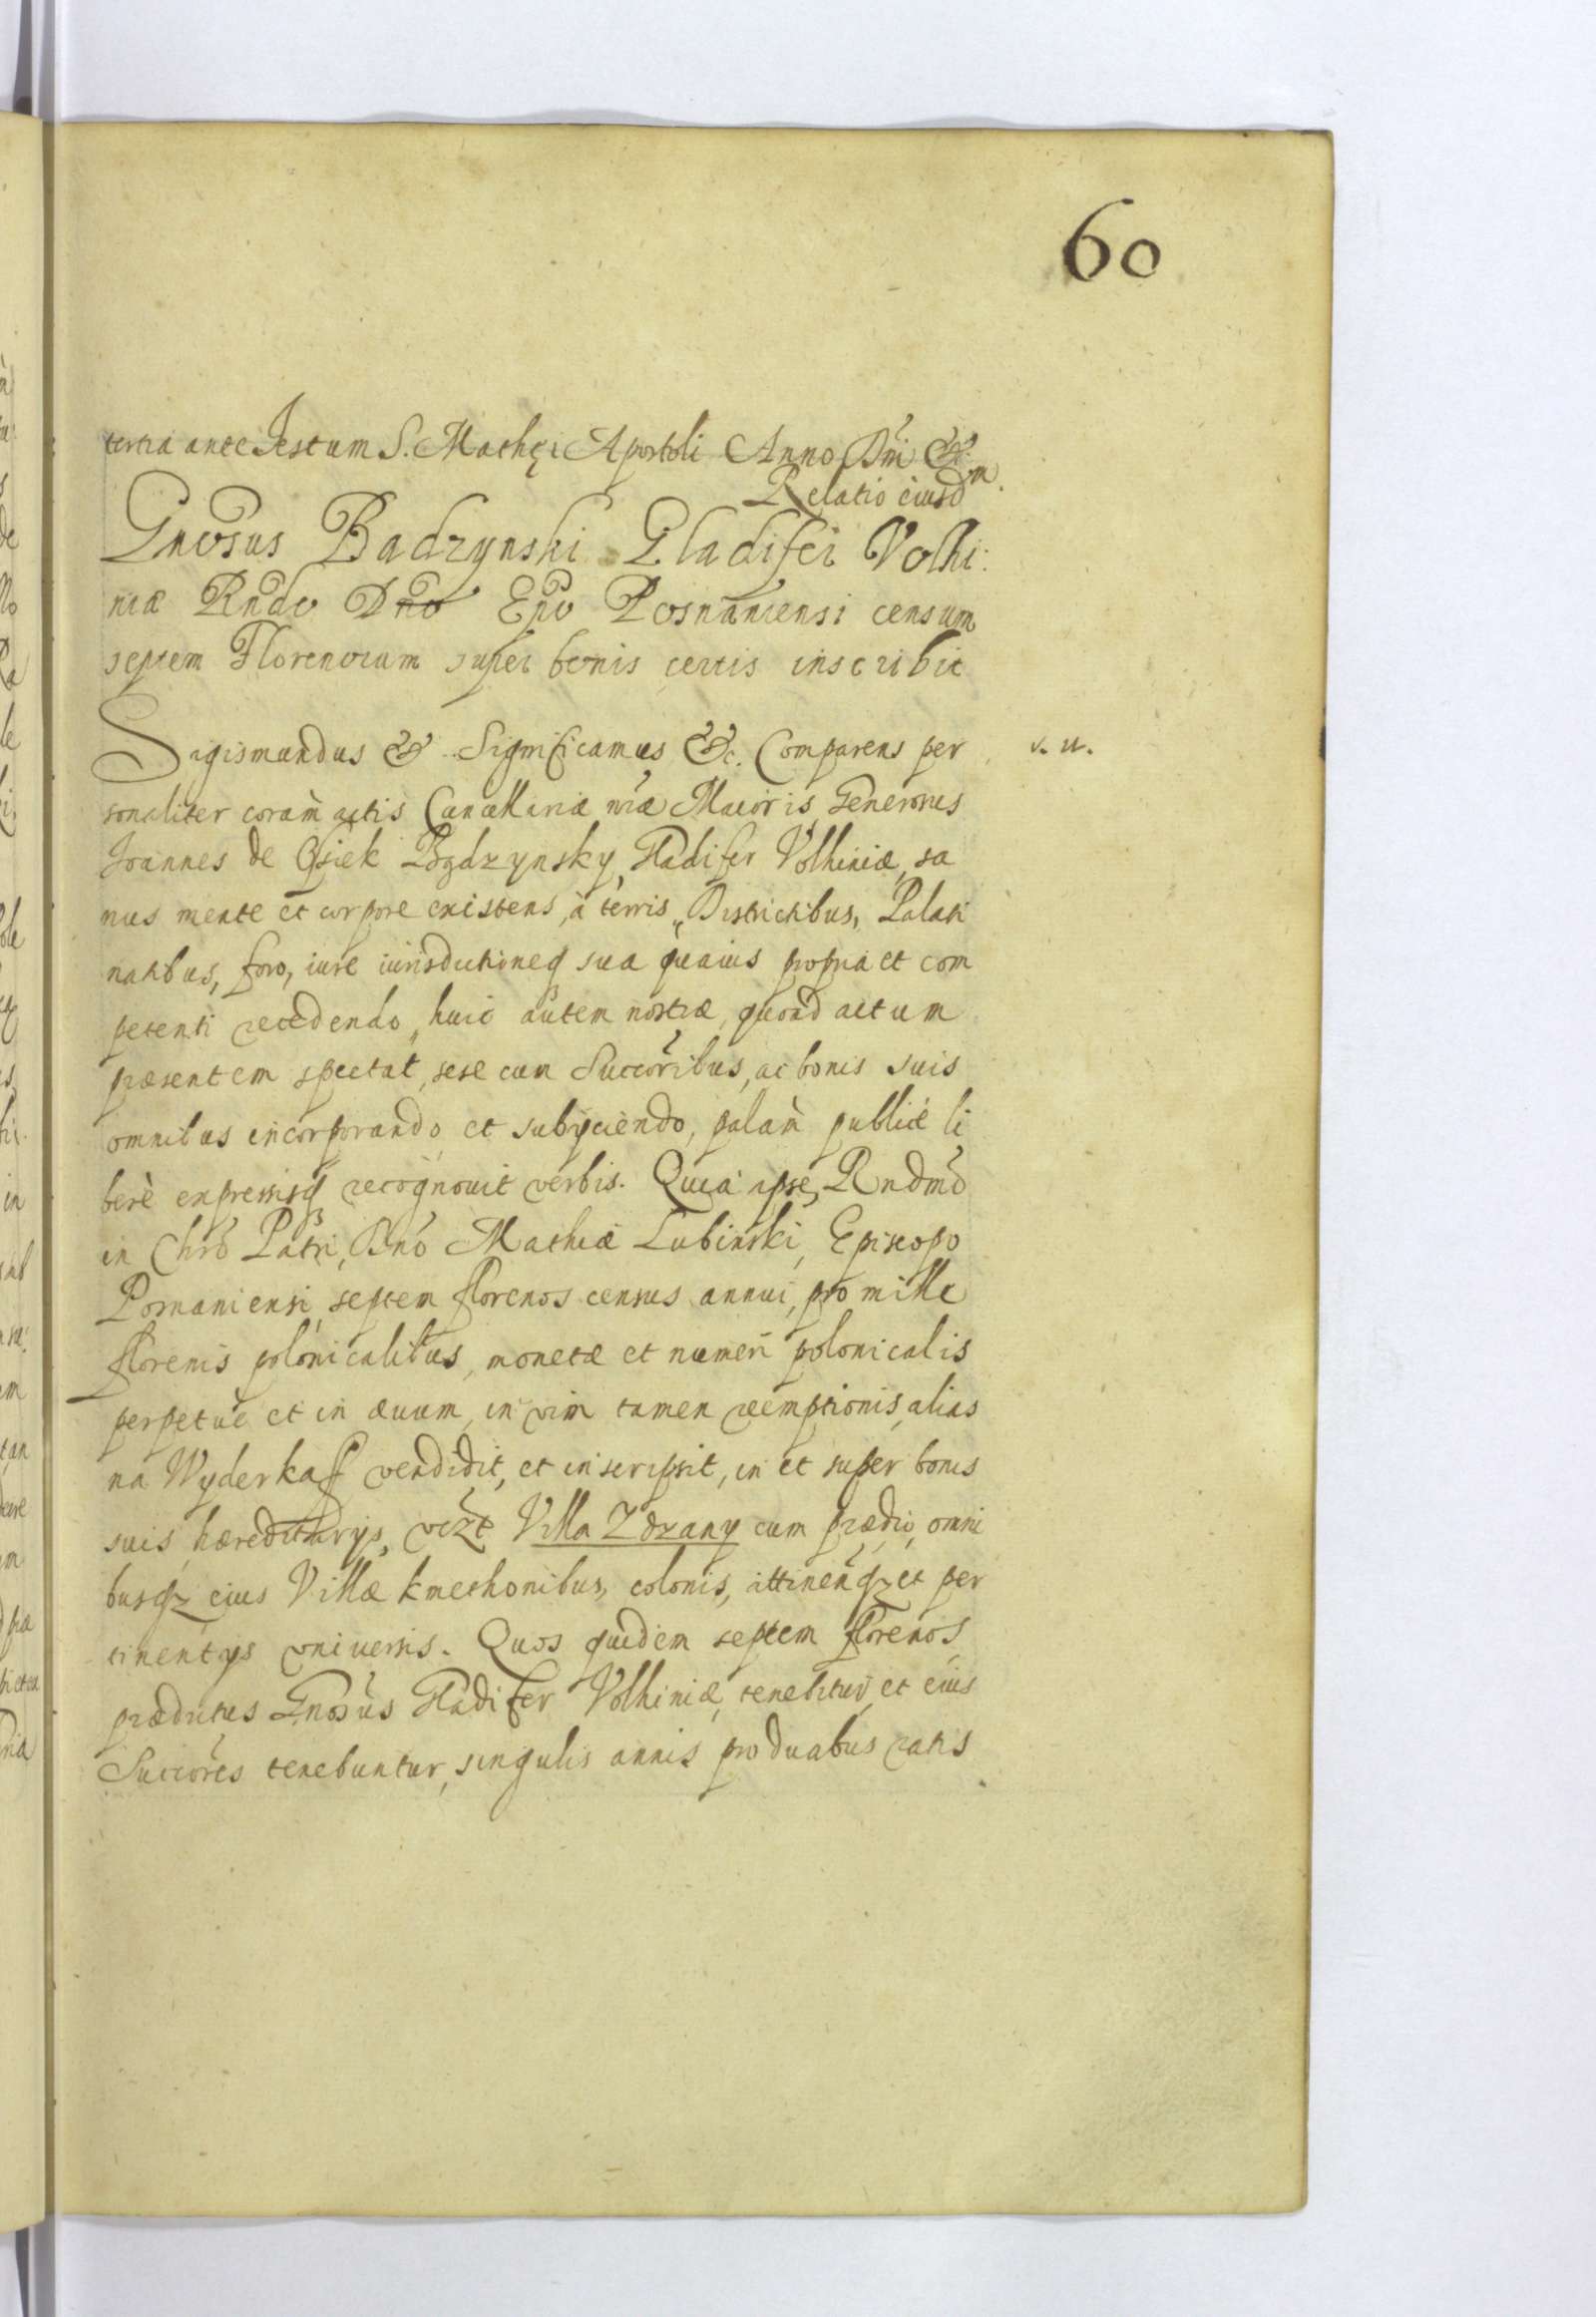 60
tertia ante Festum S. Mathęi Apostoli Anno Dni &c.
Relatio eiusdm.
Gnosus Badzynski Gladifer Volhi:
niæ Rndo Dno Epo Posnaniensi censum
septem Florenorum super bonis certis inscribit
Sigismundus &c Significamus &c. Comparens per v. u.
sonaliter coràm actis Cancellariæ nræ Maioris Generosus
Joannes de Osiek Bądzynsky, Gladifer Volhiniæ, sa
nus mente et corpore existens, à terris, Districtibus, Palati
natibus, foro, iure iurisdictioneq3 sua quauis propria et com
petenti recedendo, huic autem nostræ, quoad actum
præsentem spectat, sese cum Succoribus, ac bonis suis
omnibus incorporando et subyciendo, palàm publicè li
berè expressisq3 recognouit verbis. Quia ipse, Rndmo
in Chro Patri, Dno Mathiæ Lubinski, Episcopo
Posnaniensi, septem florenos census annui, pro mille
florenis polonicalibus, monetæ et numeri polonicalis
perpetuè et in æuum, in vim tamen reemptionis, alias
na Wyderkaff vendidit, et inscripsit, in et super bonis
suis hæreditarys, vizt Villa Zdzany cum prædio, omni
busqz eius Villæ kmethonibus, colonis, attinenqz et per
tinentys vniuersis. Quos quidem septem florenos
prædictus Gnosus Gladifer Volhiniæ, tenebitur, et eius
Succores tenebuntur, singulis annis pro duabus ratis